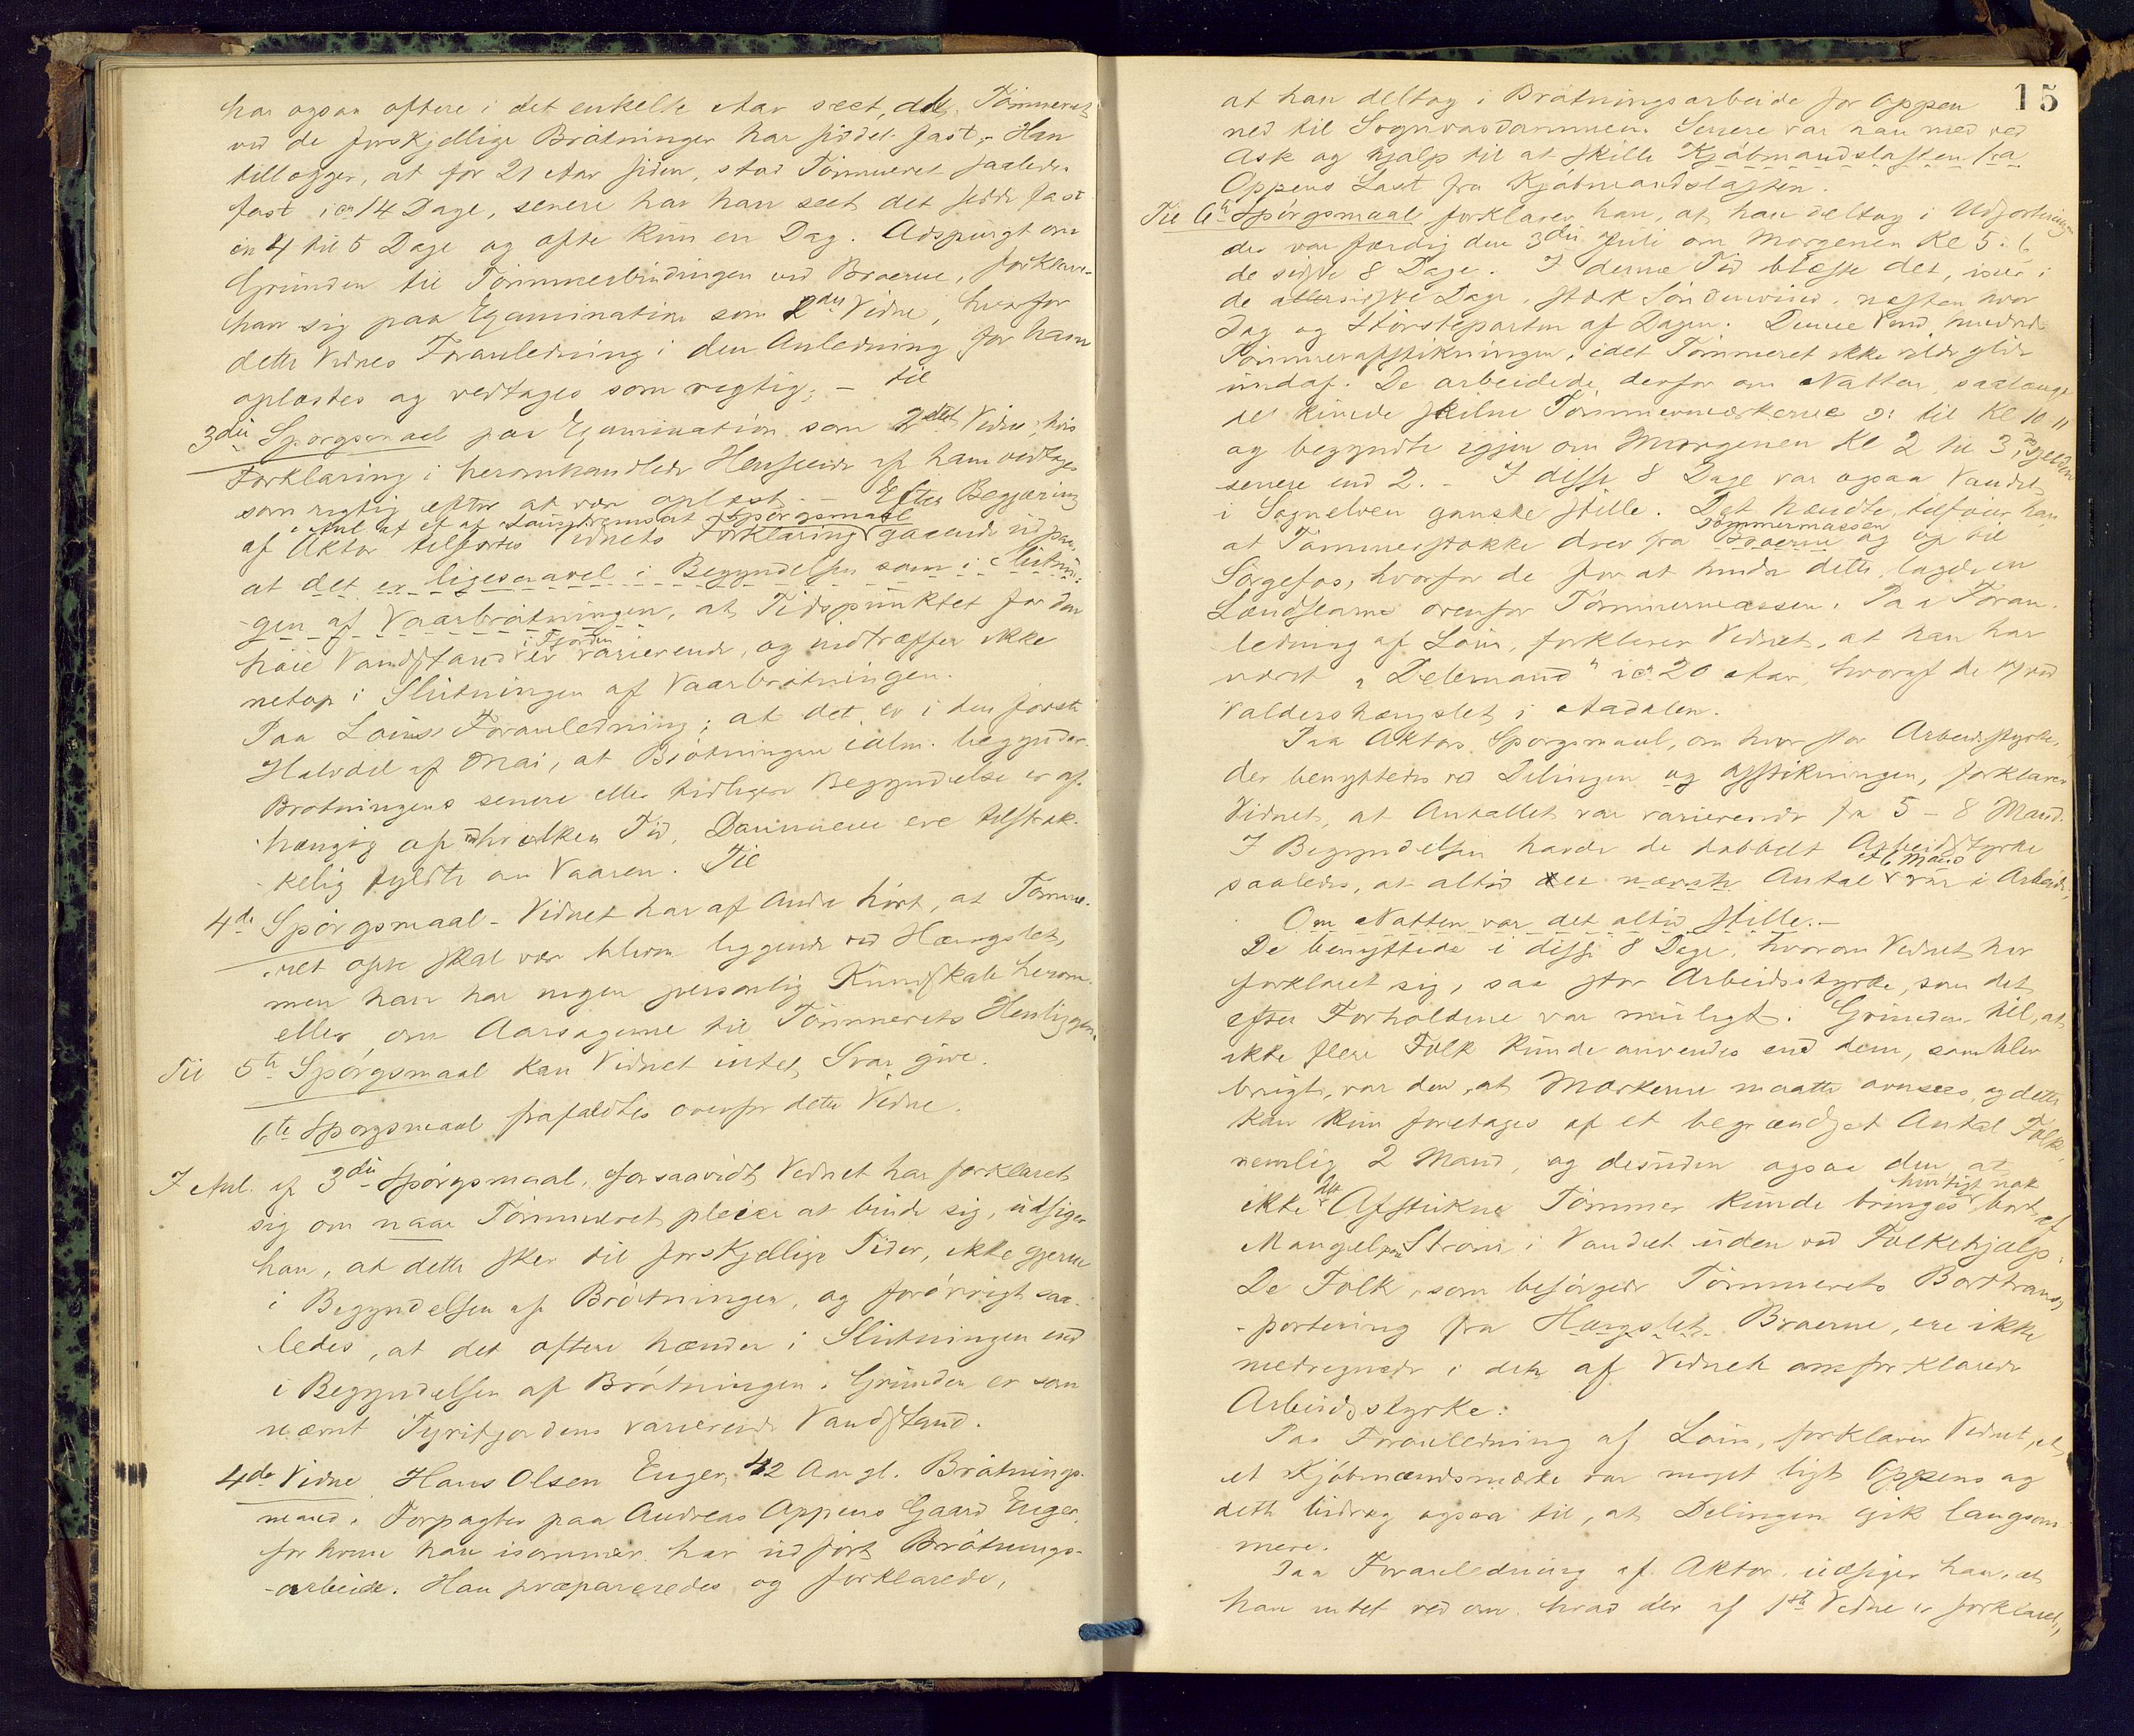 har ogsaa oftere i det enkelte Aar seet, at Tömmeret
ved de forskjellige Brötninger har siddet fast. Han
tillægger, at for 21 Aar siden, stod Tömmeret saaledes
fast i ca 14 Dage, senere har han seet det sidde fast
en 4 til 5 Dage og ofte kun en Dag. Adspurgt om
Grunden til Tömmerbindingen ved Broerne, forklare-
han sig paa Examination som 2det Vidne, hvorfor
dette Vidnes Foranledning i den Anledning for ham
oplæstes og vedtages som rigtig. – til
3die Spörgsmaal paa Examination som 2det Vidne, hvis
Forklaring i heromhandlede Henseende af ham vedtages
som rigtig efter at være oplæst. – Efter Begjæring
i Anl. af et af fremsat Spörgsmaal
af Aktor tilförtes Vidnets Forklaring gaaende ud paa,
at det er ligesaavel i Begyndelsen som i Slutnin-
gen af Vaarbrötningen, at Tidspunktet for den
i Fjorden
höie Vandstand er varierende, og indtræffer ikke
netop i Slutningen af Vaarbrötningen.
Paa Lains Foranledning: at det er i den förste
Halvdel af Mai, at Brötningen ialm. begynder.
Brötningens senere eller tidligere Begyndelse er af-
hængig af hvilken Tid, Dammene ere tilstræk-
kelig fyldte om Vaaren. Til
4de Spörgsmaal – Vidnet har af Andre hört, at Tömme-
ret ofte skal være bleven liggende ved Hængslet,
men han har ingen personlig Kundskab herom
eller om Aarsagerne til Tömmerets Henliggen.
Til 5te Spörgsmaal kan Vidnet intet Svar give.
6te Spörgsmaal frafaldtes overfor dette Vidne.
I Anl. af 3die Spörgsmaal, forsaavidt Vidnet har forklaret
sig om naar Tömmeret pleier at binde sig, udsiger
han, at dette sker til forskjellige Tider, ikke gjerne
i Begyndelsen af Brötningen, og forövrigt saa-
ledes, at det oftere hænder i Slutningen end
i Begyndelsen af Brötningen. Grunden er som
nævnt Tyrifjordens varierende Vandstand.
4de Vidne Hans Olsen Enger, 42 Aar gl. Brötnings-
mand, Forpagter paa Andreas Oppens Gaard Enger,
for hvem han isommer har udfört Brötnings-
arbeide. Han præpareredes og forklarede,
15
at han deltog i Brötningsarbeide for Oppen
ned til Sognvasdammen. Senere var han med ved
Ask og hjalp til at skille Kjöbmandslasten fra
Oppens Last fra Kjöbmandslasten.
Til 6te Spörgsmaal forklarer han, at han deltog i
der var færdig den 3die Juli om Morgenen Kl 5 à 6
de sidste 8 Dage. I denne Tid blæste det, især i
de allersidste Dage, stærk Söndenvind, næsten hver
Dag og Störsteparten af Dagen. Denne Vind hindrede
Tömmerafstikningen, idet Tömmeret ikke vilde glide
undaf. De arbeidede derfor om Natten saalænge
de kunde skilne Tömmermærkerne ɔ: til Kl 10-11
og begyndte igjen om Morgenen Kl 2 til 3,
senere end 2. – I disse 8 Dage var ogsaa Vandet
i Sognelven ganske stille. Det hændte, tilföier han,
Tömmermassen
at Tömmerstokke drev fra Broerne og op til
Sörgefos, hvorfor de for at hindre dette, lagde en
Landslænse ovenfor Tömmermassen. Paa Foran-
ledning af Lain, forklarer Vidnet, at han har
været "Delemand" i ca 20 Aar, hvoraf de 17 ved
Valdershængslet i Aadalen.
Paa Aktors Spörgsmaal, om hvor stor Arbeidsstyrke,
der benyttedes ved Delingen og Afstikningen, forklarer
Vidnet, at Antallet var varierende fra 5 – 8 Mand.
I Begyndelsen havde de dobbelt Arbeidsstyrke
af 6 Mand
saaledes, at altid det næste Antal var i Arbeide.
Om Natten var det altid stille. –
De benyttede i disse 8 Dage, hvorom Vidnet har
forklaret sig, saa stor Arbeidsstyrke, som det
efter Forholdene var muligt. Grunden til, at
ikke flere Folk kunde anvendes end dem, som blev
brugt, var den, at Mærkerne maatte avsees, og dette
kan kun foretages af et begrændset Antal Folk,
nemlig 2 Mand, og desuden ogsaa den, at
hurtigt nok
ikke det Afstukne Tömmer kunde bringes bort, af
Mangel paa Ström i Vandet uden ved Folkehjælp.
De Folk, som besörgede Tömmerets Borttrans-
portering fra Hængslet Broerne, ere ikke
medregnede i den af Vidnet omforklarede
Arbeidsstyrke.
Paa Foranledning af Lain, forklarer Vidnet, at
et Kjöbmandsmærke var meget ligt Oppens og
dette bidrog ogsaa til, at Delingen gik langsom-
mere.
Paa Foranledning af Aktor udsiger han, at
han intet ved om hvad der af 1ste Vidne er forklaret,